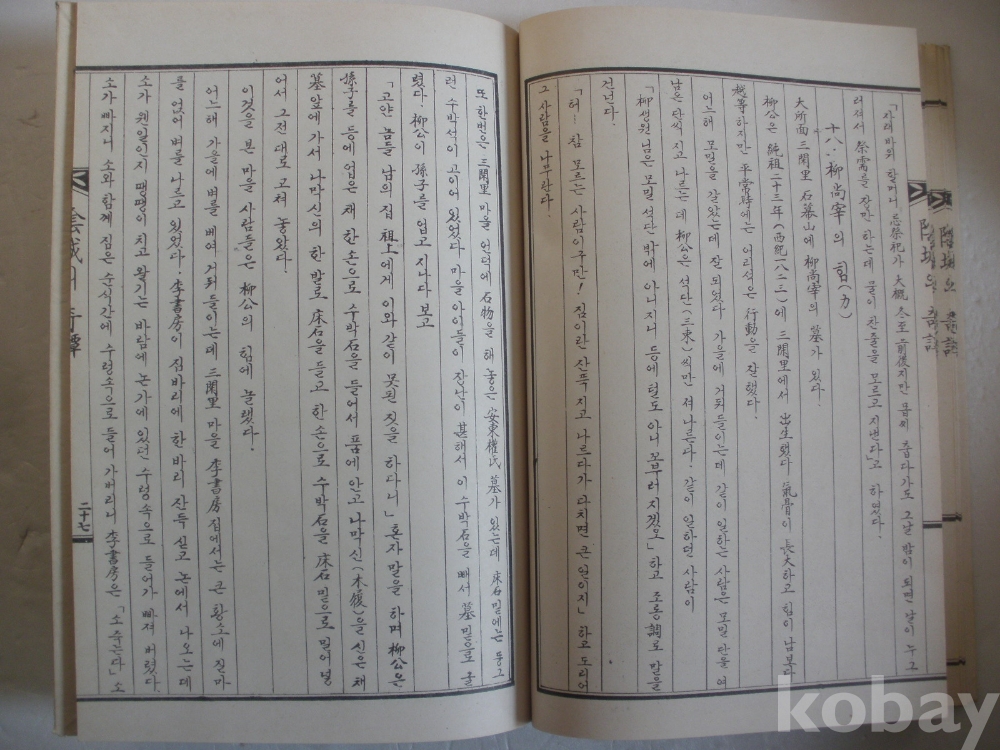 「자래바위 할머니 忌祭祀가 大槪 冬至 前後지만 몹씨 춥다가도 그날 밤이 되면 날이 누구
러져서 祭需를 장만 하는데 물이 찬줄을 모르고 지낸다」고 하였다.
十八. 柳尚宰의 힘(力)
大所面 三閑里 石墓山에 柳尚宰의 墓가 있다.
柳公은 純祖二十三年(西紀一八二三)에 三閑里에서 出生했다 氣骨이 長大하고 힘이 남보다
越等하지만 平常時에는 어리섞은 行動을 잘했다.
어느해 모밀을 갈았는데 잘 되었다 가을에 거둬들이는데 같이 일하는 사람은 모밀 단을 여
남은 단씩 지고 나르는데 柳公은 석단(三束)씩만 져나른다. 같이 일하던 사람이
「柳生원님은 모밀 석단 밖에 아니지니 등에 털도 아니 모부러지겠오」하고 조롱調로 말을
건넌다.
「허… 참 모르는 사람이구만! 짐이란 잔뜩 지고 나르다가 다치면 큰 일이지」하고 도리어
그 사람을 나무란다.
또 한번은 三閑里 마을 언덕에 石物을 해 놓은 安東權氏 墓가 있는데 床石 밑에는 둥그
런 수박석이 고이어 있었다 마을아이들이 잔난이 甚해서 이 수박석을 빼서 墓 밑으로 굴
렸다. 柳公이 孫子를 업고 지나다 보고
「고얀 놈들 남의 집 祖上에게 이와같이 못된 짓을 하다니」혼자 말을 하며 柳公은
孫子를 등에 업은 채 한손으로 수박석을 들어서 품에 안고 나막신(木履)을 신은 채
墓 앞에 가서 나막신의 한 발로 床石을 들고 한 손으로 수박석을 床石 밑으로 밀어 넣
어서 그전 대로 고쳐 놓았다.
이것을 본 마을 사람들은 柳公의 힘에 놀랬다.
어느해 가을에 벼를 베여 거둬들이는데 三閑里 마을 李書房집에서는 큰 황소에 질마
를 얹어 벼를 나르고 있었다. 李書房이 짐바리에 한 바리 잔득 싣고 논에서 나오는데
소가 웬일인지 땡땡이 치고 왔기는 바람에 논가에 있던 수렁속으로 들어가 빠져 버렸다.
소가 빠지니 소와 함께 짐은 순식간에 수렁속으로 들어 가버리니 李書房은 「소 죽는다」소
二十七
kobay